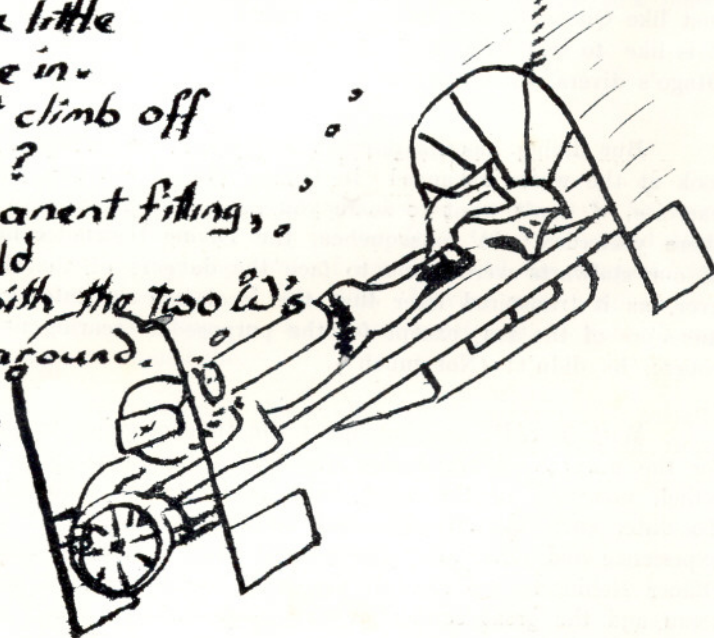 a little
e in.
climb off
?
anent filling,
ld
with the two W's
around.